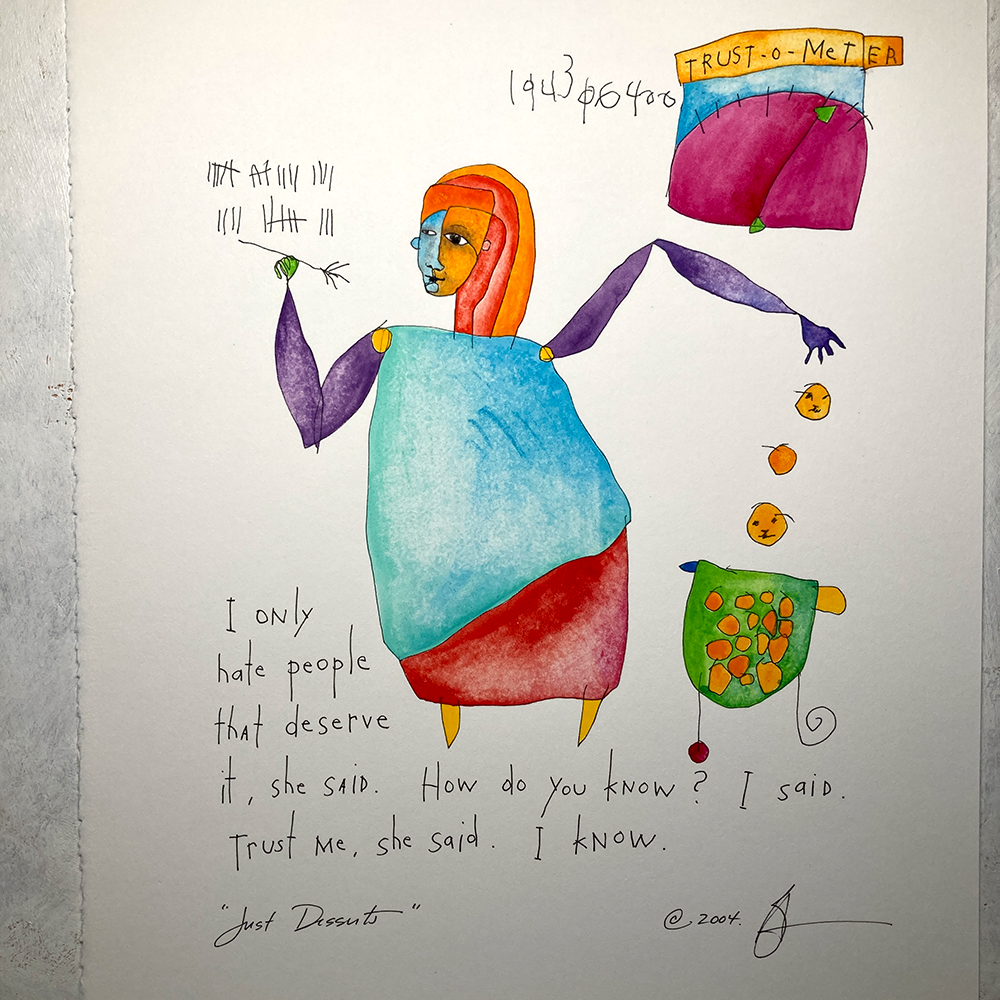 TRUST-o-METER
I only
hate people
that deserve
it, she said. How do you know? I said.
Trust me, she said. I know.
"Just Desserts" © 2004.